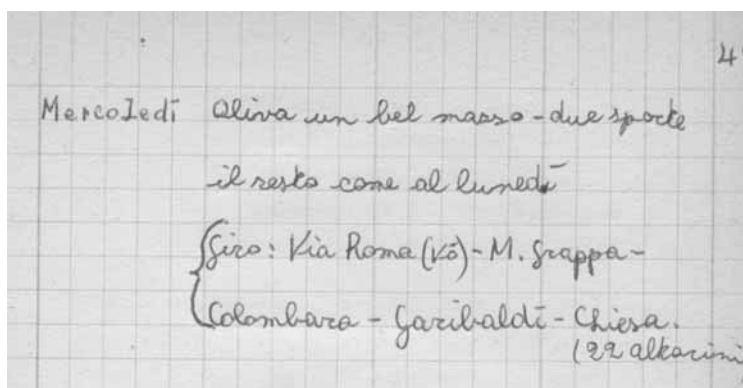 4
Mercoledì Oliva un bel mazzo - due sporte
il resto come al lunedì
Giro: Via Roma (Vò) - M. Grappa -
Colombara - Garibaldi - Chiesa.
(22 altarini